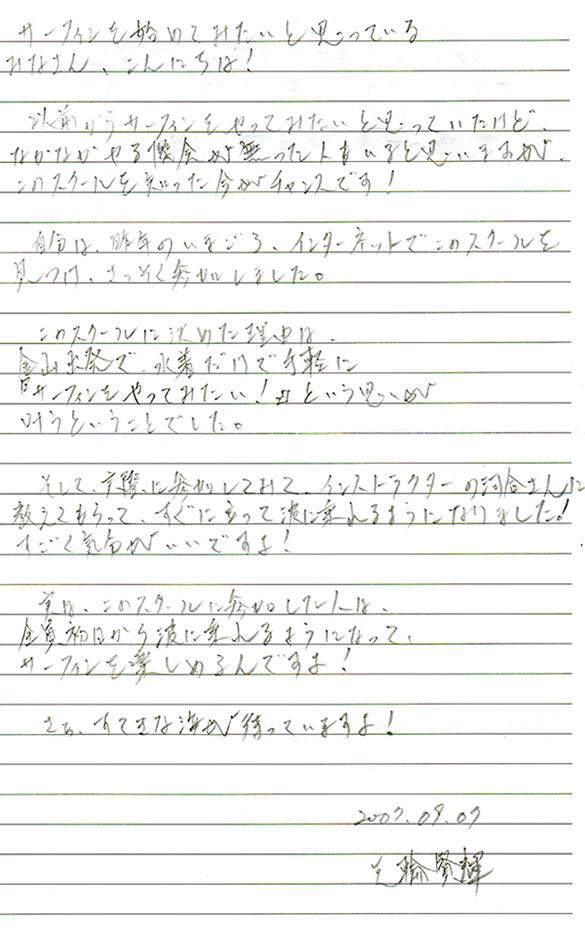 サーフィンを始めてみたいと思っている
みなさん、こんにちは!
以前からサーフィンをやってみたいと思っていたけど、
なかなかやる機会が無った人もいると思いますが、
このスクールを知った今がチャンスです!
自分は、昨年のいまごろ、インターネットでこのスクールを
見つけ、さっそく参加しました。
このスクールに決めた理由は、
金山出発で、水着だけで手軽に
"サーフィンをやってみたい!"という思いが
叶うということでした。
そして、実際に参加してみて、インストラクターの河合さんに
教えてもらって、すぐに立って波に乗れるようになりました!
すごく気分がいいですよ!
実は、このスクールに参加した人は、
全員初日から波に乗れるようになって、
サーフィンを楽しめるんですよ!
さぁ、すてきな海が待っていますよ!
2007.09.07
賢輝